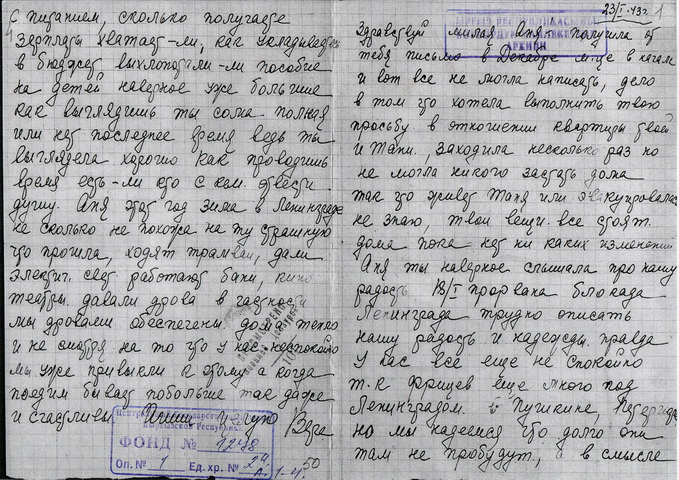 23/I-43г. 1
Здравствуй милая Аня получила от
тебя письмо в Декабре м-це в начале
и вот все не могла написать, дело
в том что хотела выполнить твою
просьбу в отношении квартиры твоей
и Тани., заходила несколько раз но
не могла никого застать дома
так что живет Таня или эвакуировалась
не знаю, твои вещи. все стоят.
дома пока нет ни каких изменений
Аня ты наверное слышала про нашу
радость 18/I прорвана блокада
Ленинграда трудно описать
нашу радость и надежды. правда
у нас все еще не спокойно
т.к фрицев еще много под
Ленинградом. в Пушкине, Петергофе
но мы надеемся что долго они
там не пробудут, а в смысле
с питанием, сколько получаете
зарплаты хватает-ли, как укладываетесь
в бюджет выхлопотали-ли пособие
на детей наверное уже большие
как выглядишь ты сама. полная
или нет последнее время ведь ты
выглядела хорошо как проводишь
время есть-ли кто с кем. отвести
душу. Аня этот год зима в Ленинграде
не сколько не похожа на ту страшную
что прошла, ходят трамваи, дали
электич. свет. работают бани, кино
театры. давали дрова в частности
мы дровами обеспечены. дома тепло
и не смотря на то что у нас неспокойно
мы уже привыкли к этому а когда
поедим бывает побольше так даже
и счастливы. Пиши целую Вера
Кыргызской Республики
ФОНД № 1248
Оп. № 1 Ед. хр. № 2а
АРХИВИ